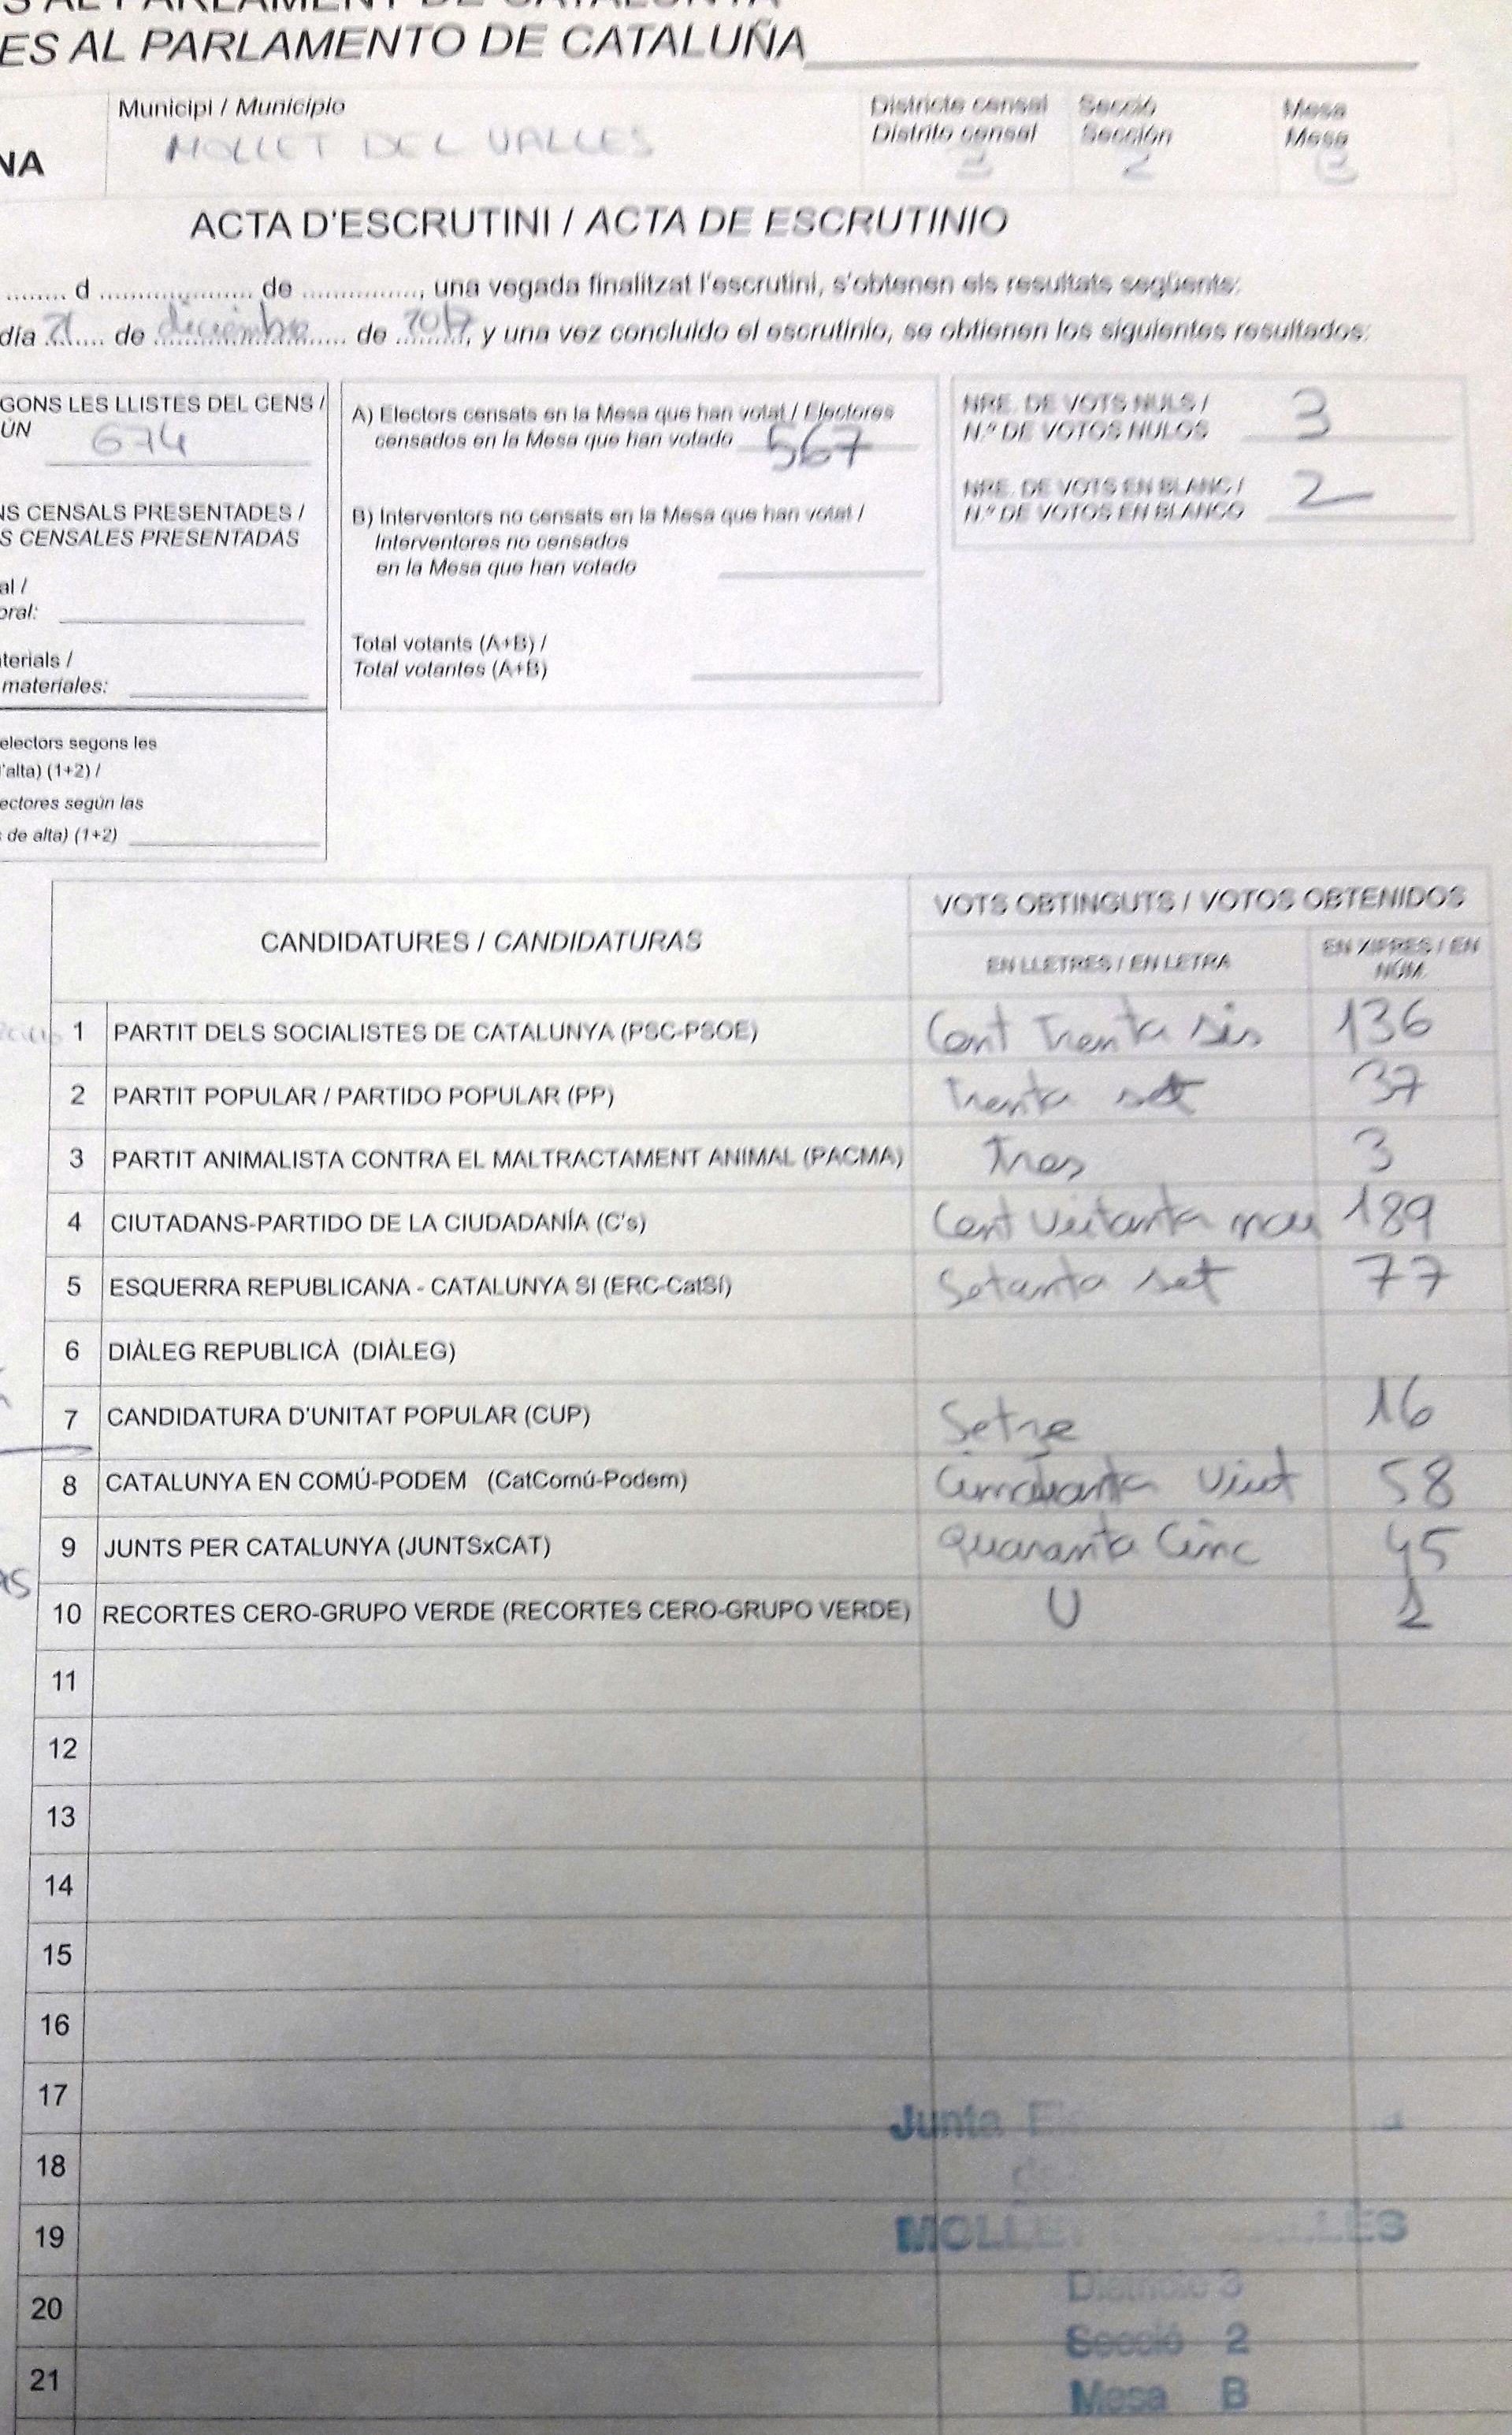 S AL PARLAMENT DE CATALUNYA
ES AL PARLAMENTO DE CATALUÑA
NA
Municipi / Municipio
MOLLET DEL VALLES
Districte censal
Distrito censal
3
Secció
Sección
2
Mesa
Mesa
B
ACTA D'ESCRUTINI / ACTA DE ESCRUTINIO
........ d ...................... de ..............., una vegada finalitzat l'escrutini, s'obtenen els resultats següents:
día 21 de diciembre de 2017, y una vez concluido el escrutinio, se obtienen los siguientes resultados:
GONS LES LLISTES DEL CENS /
ÚN
674
NS CENSALS PRESENTADES /
S CENSALES PRESENTADAS
al /
oral:
terials /
materiales:
electors segons les
'alta) (1+2) /
ectores según las
de alta) (1+2)
A) Electors censats en la Mesa que han votat / Electores
censados en la Mesa que han votado 567
B) Interventors no censats en la Mesa que han votat /
Interventores no censados
en la Mesa que han votado
Total votants (A+B) /
Total votantes (A+B)
NRE. DE VOTS NULS /
N.º DE VOTOS NULOS 3
NRE. DE VOTS EN BLANC /
N.º DE VOTOS EN BLANCO 2
CANDIDATURES / CANDIDATURAS
VOTS OBTINGUTS / VOTOS OBTENIDOS
EN LLETRES / EN LETRA
EN XIFRES / EN
NÚM.
1 PARTIT DELS SOCIALISTES DE CATALUNYA (PSC-PSOE) Cent Trenta sis 136
2 PARTIT POPULAR / PARTIDO POPULAR (PP) Trenta set 37
3 PARTIT ANIMALISTA CONTRA EL MALTRACTAMENT ANIMAL (PACMA) Tres 3
4 CIUTADANS-PARTIDO DE LA CIUDADANÍA (C's) Cent Vuitanta nou 189
5 ESQUERRA REPUBLICANA - CATALUNYA SI (ERC-CatSÍ) Setanta set 77
6 DIÀLEG REPUBLICÀ (DIÀLEG)
7 CANDIDATURA D'UNITAT POPULAR (CUP) Setze 16
8 CATALUNYA EN COMÚ-PODEM (CatComú-Podem) Vuit 58
9 JUNTS PER CATALUNYA (JUNTSxCAT) Quaranta Cinc 45
10 RECORTES CERO-GRUPO VERDE (RECORTES CERO-GRUPO VERDE) U 1
11
12
13
14
15
16
17
18
19
20
21
Junta
de
MOLLE LLES
Districte 3
Secció 2
Mesa B